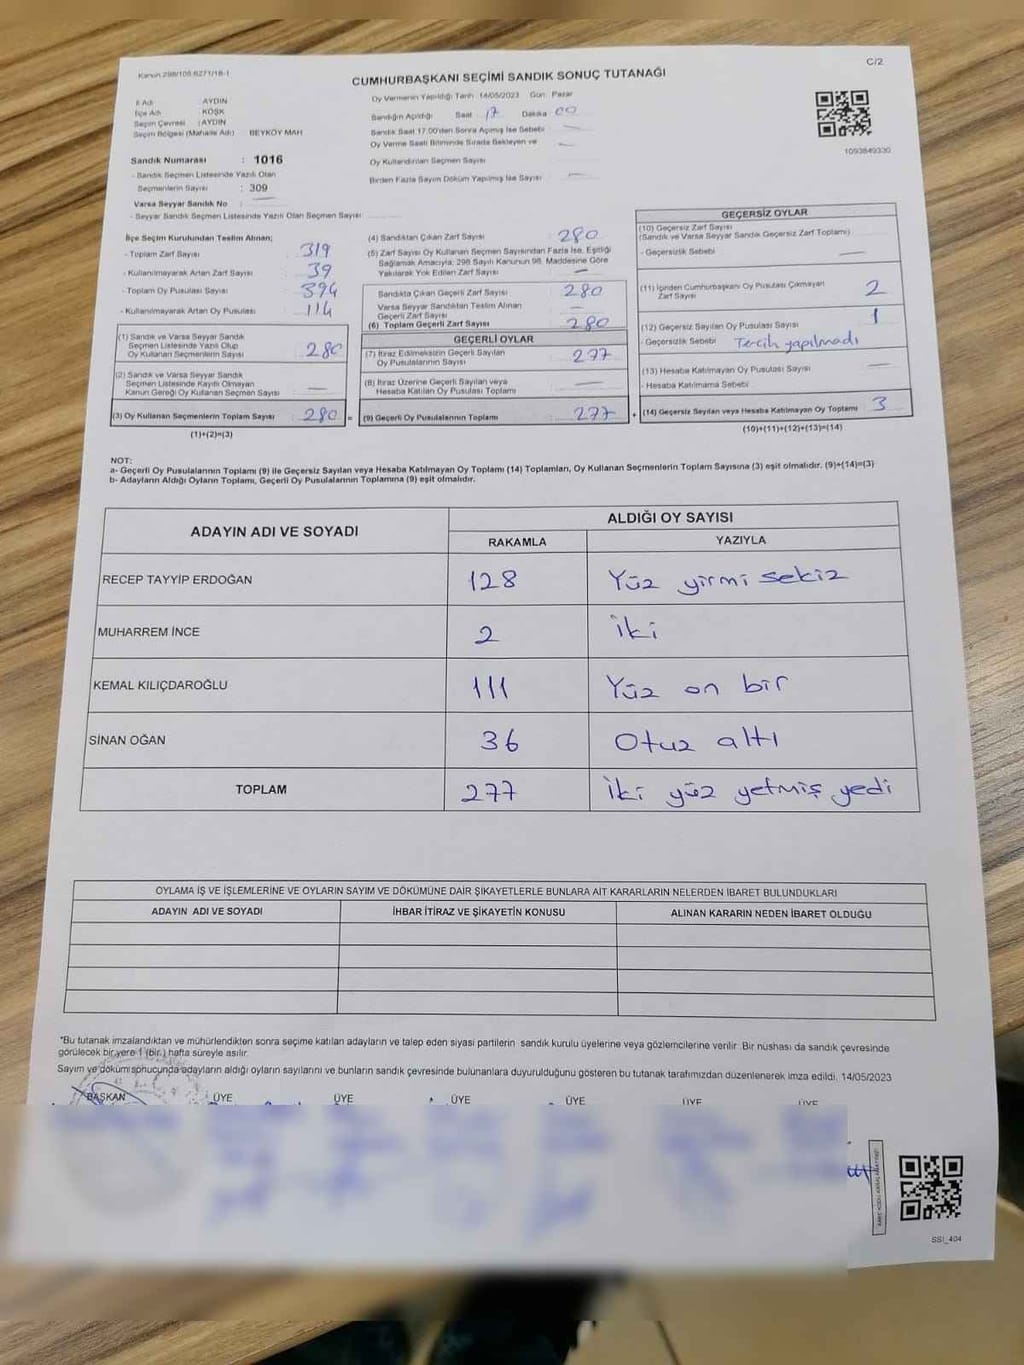 Kanun 298/106 6271/18-1
C/2
CUMHURBAŞKANI SEÇİMİ SANDIK SONUÇ TUTANAĞI
İl Adı : AYDIN
İlçe Adı : KÖŞK
Seçim Çevresi : AYDIN
Seçim Bölgesi (Mahalle Adı) BEYKÖY MAH
Sandık Numarası : 1016
- Sandık Seçmen Listesinde Yazılı Olan
Seçmenlerin Sayısı : 309
Varsa Seyyar Sandık No :
- Seyyar Sandık Seçmen Listesinde Yazılı Olan Seçmen Sayısı
Oy Vermenin Yapıldığı Tarih 14/05/2023 Gün Pazar
Sandığın Açıldığı Saat 17 Dakika 00
Sandık Saat 17.00'den Sonra Açılmış İse Sebebi
Oy Verme Saati Bitiminde Sırada Bekleyen ve
Oy Kullandırılan Seçmen Sayısı
Birden Fazla Sayım Döküm Yapılmış İse Sayısı
1093849330
İlçe Seçim Kurulundan Teslim Alınan;
- Toplam Zarf Sayısı : 319
- Kullanılmayarak Artan Zarf Sayısı : 39
- Toplam Oy Pusulası Sayısı : 394
- Kullanılmayarak Artan Oy Pusulası : 114
(1) Sandık ve Varsa Seyyar Sandık
Seçmen Listesinde Yazılı Olup
Oy Kullanan Seçmenlerin Sayısı : 280
(2) Sandık ve Varsa Seyyar Sandık
Seçmen Listesinde Kayıtlı Olmayan
Kanun Gereği Oy Kullanan Seçmen Sayısı
(3) Oy Kullanan Seçmenlerin Toplam Sayısı : 280 =
(1)+(2)=(3)
(4) Sandıktan Çıkan Zarf Sayısı : 280
(5) Zarf Sayısı Oy Kullanan Seçmen Sayısından Fazla İse, Eşitliği
Sağlamak Amacıyla; 298 Sayılı Kanunun 98. Maddesine Göre
Yakılarak Yok Edilen Zarf Sayısı
Sandıkta Çıkan Geçerli Zarf Sayısı : 280
Varsa Seyyar Sandıktan Teslim Alınan
Geçerli Zarf Sayısı
(6) Toplam Geçerli Zarf Sayısı : 280
GEÇERLİ OYLAR
(7) İtiraz Edilmeksizin Geçerli Sayılan
Oy Pusulalarının Sayısı : 277
(8) İtiraz Üzerine Geçerli Sayılan veya
Hesaba Katılan Oy Pusulası Toplamı
(9) Geçerli Oy Pusulalarının Toplamı : 277 +
GEÇERSİZ OYLAR
(10) Geçersiz Zarf Sayısı
(Sandık ve Varsa Seyyar Sandık Geçersiz Zarf Toplamı)
- Geçersizlik Sebebi
(11) İçinden Cumhurbaşkanı Oy Pusulası Çıkmayan
Zarf Sayısı 2
(12) Geçersiz Sayılan Oy Pusulası Sayısı : 1
- Geçersizlik Sebebi Tercih yapılmadı
(13) Hesaba Katılmayan Oy Pusulası Sayısı
- Hesaba Katılmama Sebebi
(14) Geçersiz Sayılan veya Hesaba Katılmayan Oy Toplamı 3
(10)+(11)+(12)+(13)=(14)
NOT:
a- Geçerli Oy Pusulalarının Toplamı (9) ile Geçersiz Sayılan veya Hesaba Katılmayan Oy Toplamı (14) Toplamları, Oy Kullanan Seçmenlerin Toplam Sayısına (3) eşit olmalıdır. (9)+(14)=(3)
b- Adayların Aldığı Oyların Toplamı, Geçerli Oy Pusulalarının Toplamına (9) eşit olmalıdır.
ADAYIN ADI VE SOYADI ALDIĞI OY SAYISI
RAKAMLA YAZIYLA
RECEP TAYYİP ERDOĞAN 128 Yüz yirmi sekiz
MUHARREM İNCE 2 İki
KEMAL KILIÇDAROĞLU 111 Yüz on bir
SİNAN OĞAN 36 Otuz altı
TOPLAM 277 İki yüz yetmiş yedi
OYLAMA İŞ VE İŞLEMLERİNE VE OYLARIN SAYIM VE DÖKÜMÜNE DAİR ŞİKAYETLERLE BUNLARA AİT KARARLARIN NELERDEN İBARET BULUNDUKLARI
ADAYIN ADI VE SOYADI İHBAR İTİRAZ VE ŞİKAYETİN KONUSU ALINAN KARARIN NEDEN İBARET OLDUĞU
*Bu tutanak imzalandıktan ve mühürlendikten sonra seçime katılan adayların ve talep eden siyasi partilerin sandık kurulu üyelerine veya gözlemcilerine verilir. Bir nüshası da sandık çevresinde
görülecek bir yere 1 (bir) hafta süreyle asılır.
Sayım ve döküm sonucunda adayların aldığı oyların sayılarını ve bunların sandık çevresinde bulunanlara duyurulduğunu gösteren bu tutanak tarafımızdan düzenlenerek imza edildi. 14/05/2023
BAŞKAN ÜYE ÜYE ÜYE ÜYE ÜYE ÜYE
SSI_404